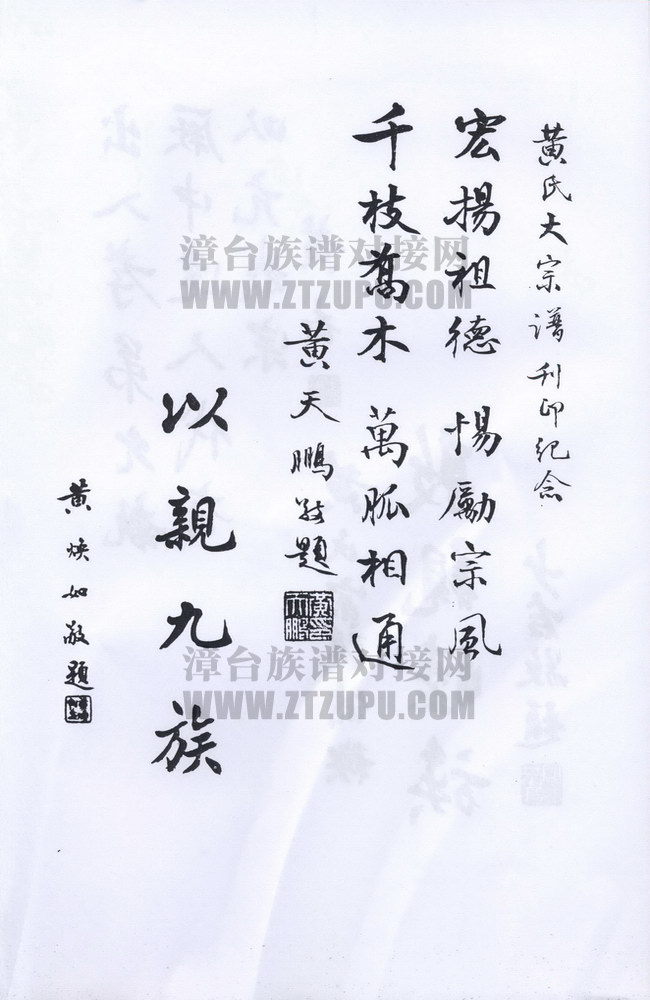 黃氏大宗谱刊印纪念
宏揚祖德 惕勵宗風
千枝萬木 萬脈相通
黃天鵬敬題
以親九族
黃煥如敬題
漳台族谱对接网
WWW.ZTZUPU.COM
漳台族谱对接网
WWW.ZTZUPU.COM